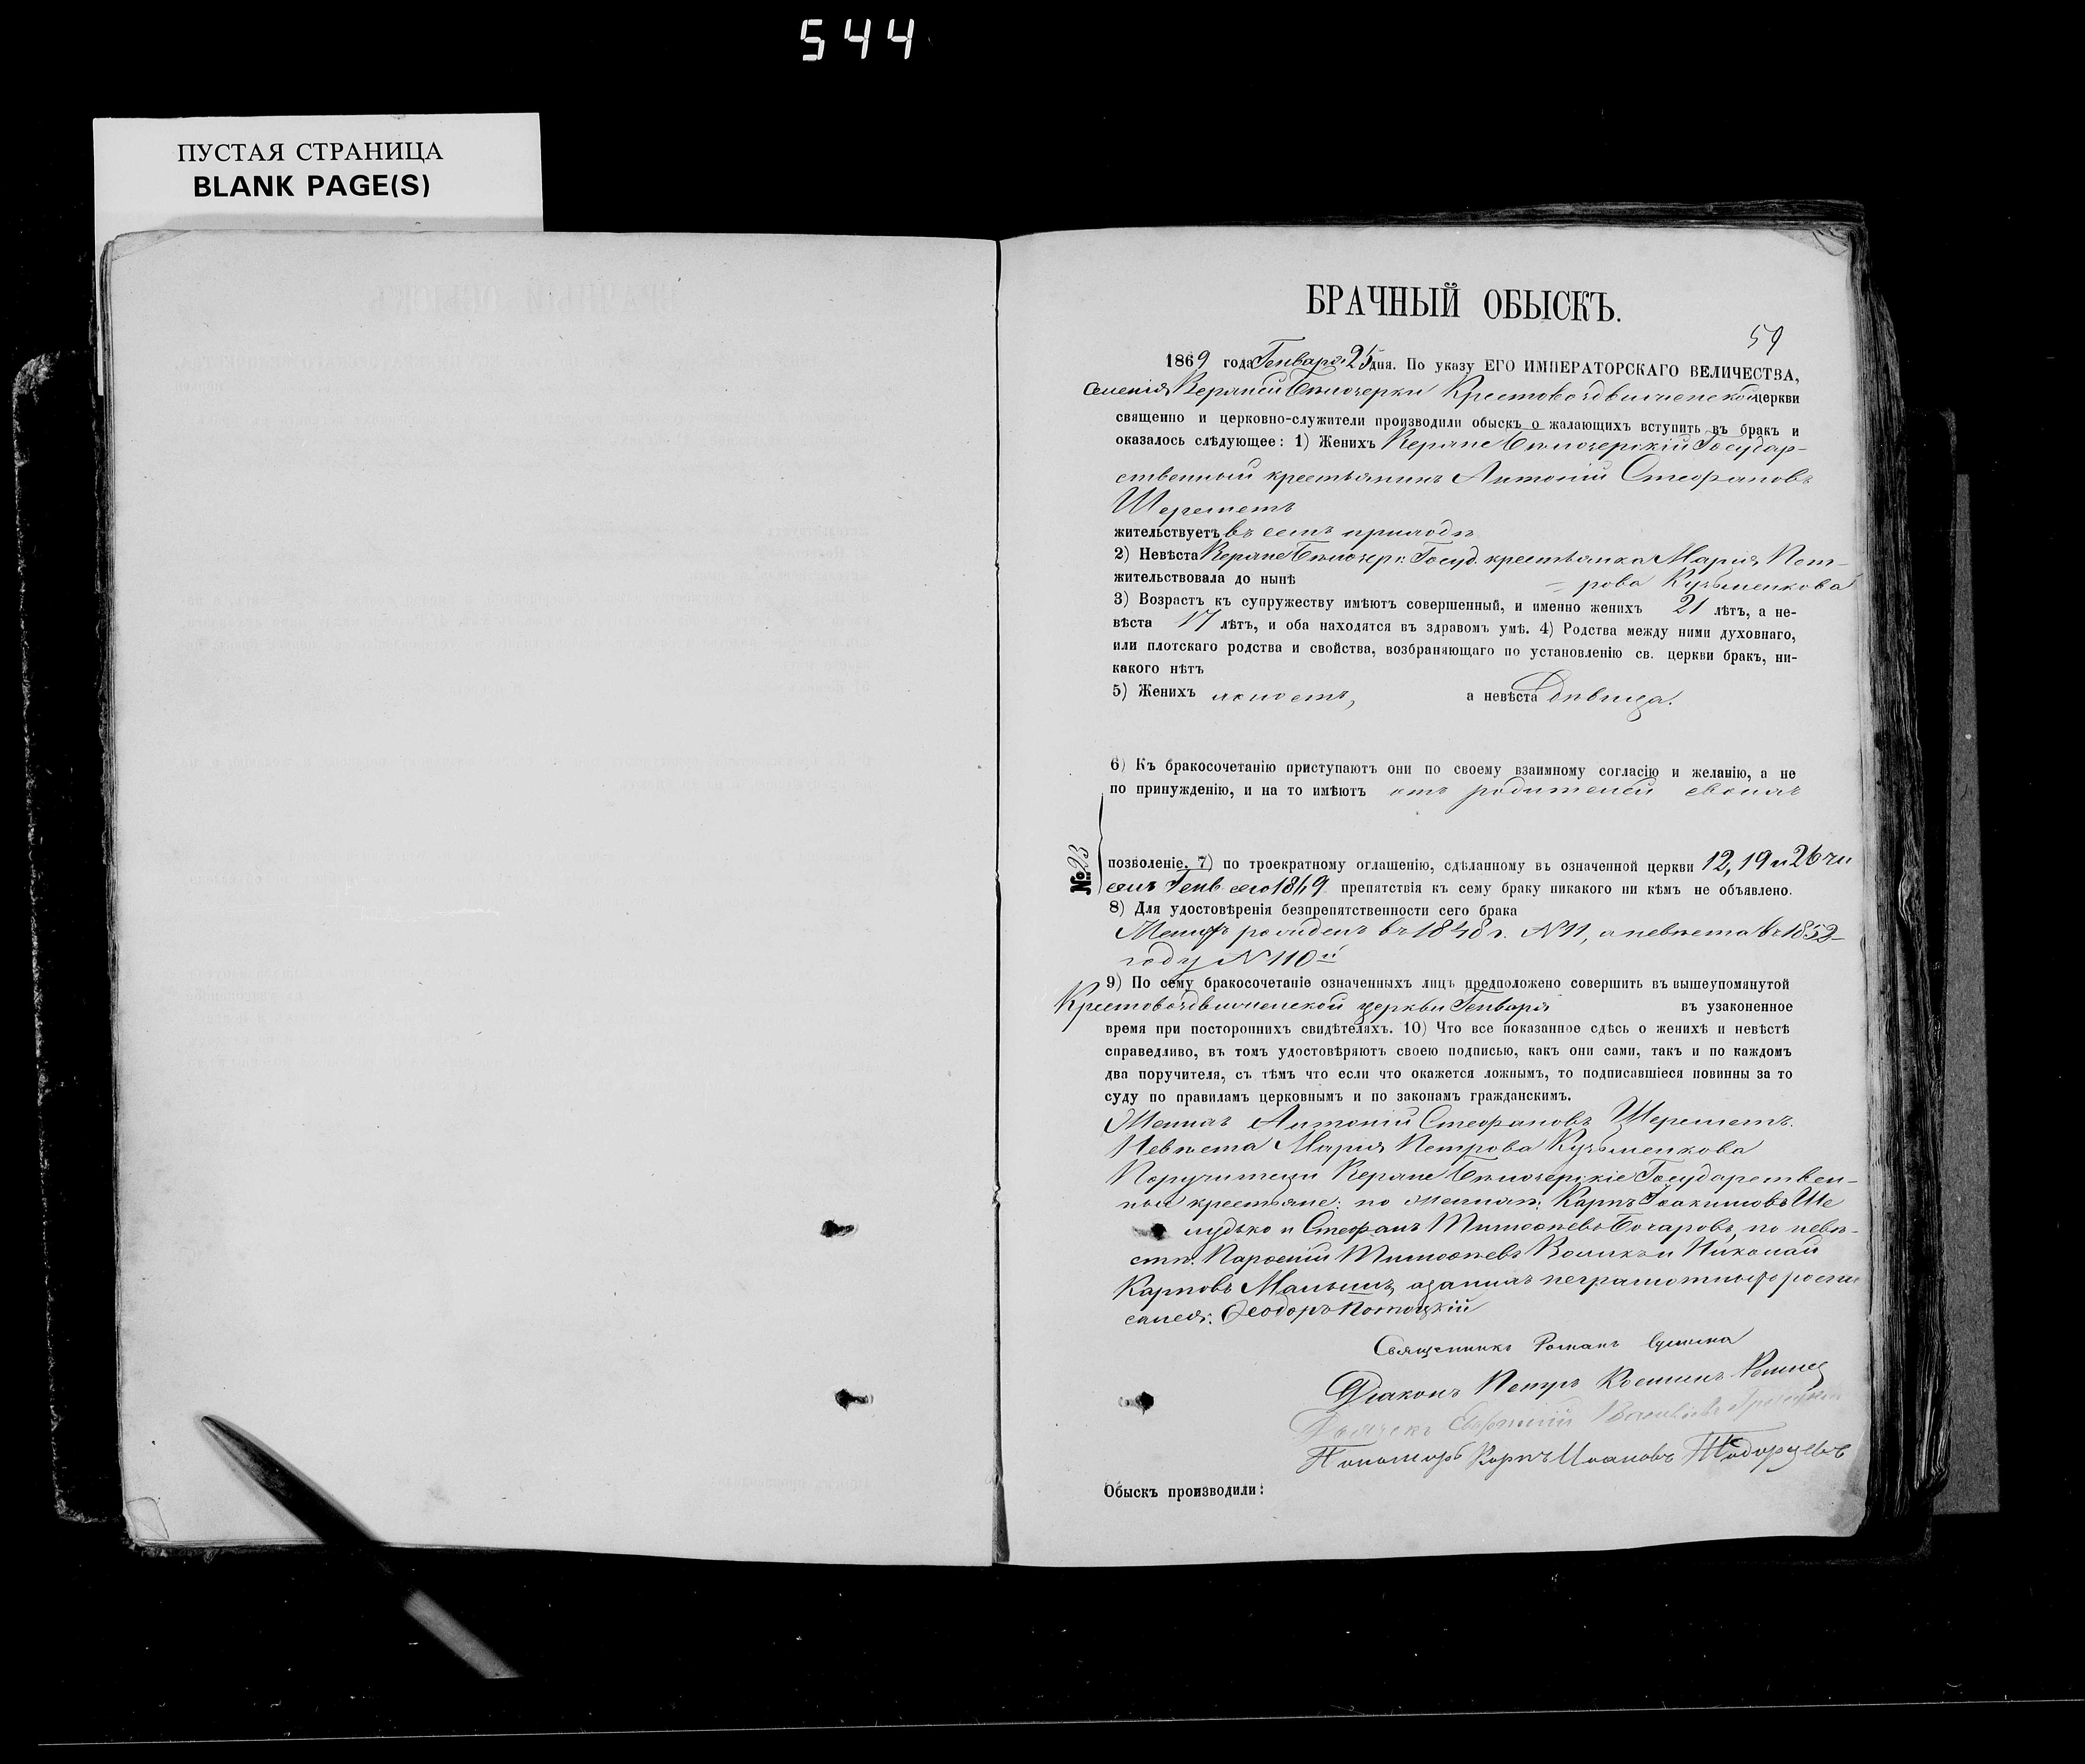 544
ПУСТАЯ СТРАНИЦА
BLANK PAGE(S)
БРАЧНЫЙ ОБЫСКЪ.
59
1869 года Генваря 25 дня. По указу ЕГО ИМПЕРАТОРСКАГО ВЕЛИЧЕСТВА,
Селенія Верхней Бѣлозерки Крестовоздвиженской церкви
священно и церковно-служители производили обыскъ о жалающихъ вступить въ бракъ и
оказалось слѣдующее: 1) Женихъ Верхне Бѣлозерскій Государ-
ственный крестьянинъ Антоній Стефановъ
Шереметъ
жительствуетъ въ семъ приходѣ
2) Невѣста Верхне Бѣлозер: Госуд. крестьянка Марія Пет-
жительствовала до нынѣ = рова Кузьменкова
3) Возрастъ къ супружеству имѣютъ совершенный, и именно женихъ 21 лѣтъ, а не-
вѣста 17 лѣтъ, и оба находятся въ здравомъ умѣ. 4) Родства между ними духовнаго,
или плотскаго родства и свойства, возбраняющаго по установленію св. церкви бракъ, ни-
какого нѣтъ
5) Женихъ холостъ, а невѣста дѣвица.
6) Къ бракосочетанію приступаютъ они по своему взаимному согласію и желанію, а не
по принужденію, и на то имѣютъ отъ родителей своихъ
№ 23
позволеніе. 7) по троекратному оглашенію, сдѣланному въ означенной церкви 12, 19 и 26 чи
селъ Генв. сего 1869 препятствія къ сему браку никакого ни кѣмъ не объявлено.
8) Для удостовѣренія безпрепятственности сего брака
Женихъ рожденъ въ 1848 г. №11, а невѣста въ 1852
году №110й
9) По сему бракосочетаніе означенныхъ лицъ предположено совершить въ вышеупомянутой
Крестовоздвиженской церкви Генваря въ узаконенное
время при постороннихъ свидѣтеляхъ. 10) Что все показанное сдѣсь о женихѣ и невѣстѣ
справедливо, въ томъ удостовѣряютъ своею подписью, какъ они сами, такъ и по каждомъ
два поручителя, съ тѣмъ что если что окажется ложнымъ, то подписавшіеся повинны за то
суду по правиламъ церковнымъ и по законамъ гражданскимъ.
Женихъ Антоній Стефановъ Шереметъ.
Невѣста Марія Петрова Кузьменкова
Поручители Верхне Бѣлозерскіе Государствен-
ные крестьяне: по женихѣ: Карпъ Іоакимовъ Ше
лудько и Стефанъ Тимоѳеевъ Бочаровъ, по невѣ-
стѣ: Тимоѳеевъ Воликъ и Николай
Карповъ Малышъ, а за нихъ неграмотныхъ роспи
сался: Ѳеодоръ Потоцкій
Священникъ Романъ
Діаконъ Петръ
Дьячекъ Евфимій
Пономарь Карпъ Ивановъ Тодорцевъ
Обыскъ производили: